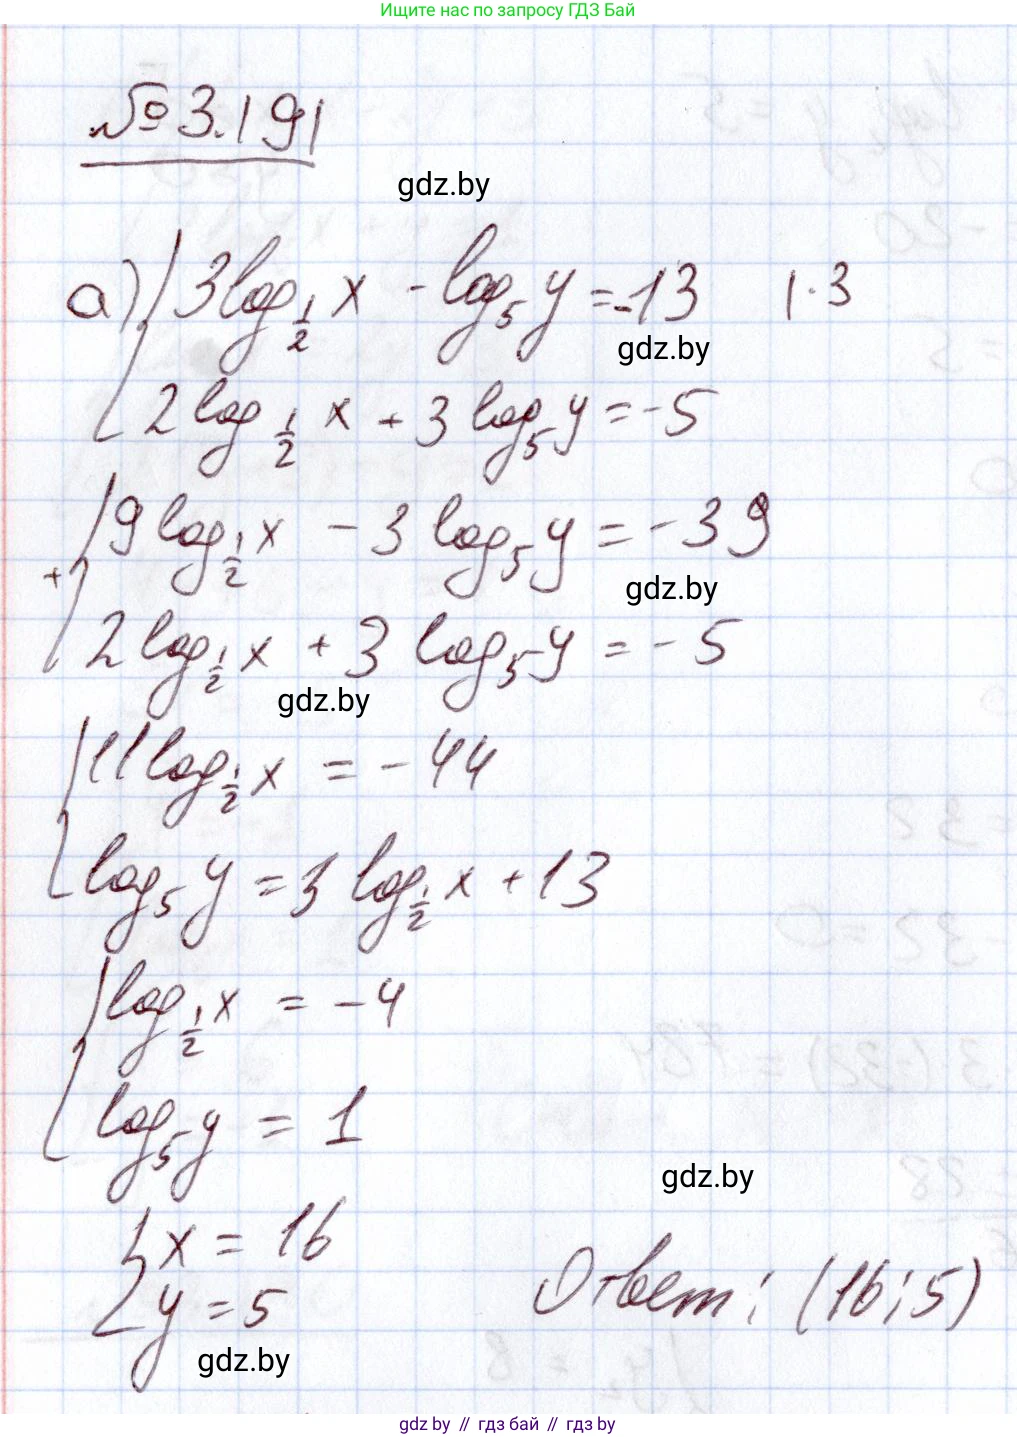 Ищите нас по запросу ГДЗ Бай
№ 3.191
gdz.by
а) { 3log_{1/2} x - log_5 y = -13 | · 3
gdz.by
2log_{1/2} x + 3log_5 y = -5
+ { 9log_{1/2} x - 3log_5 y = -39
gdz.by
2log_{1/2} x + 3log_5 y = -5
gdz.by
{ 11log_{1/2} x = -44
log_5 y = 3log_{1/2} x + 13
{ log_{1/2} x = -4
log_5 y = 1
gdz.by
{ x = 16
y = 5 Ответ: (16; 5)
gdz.by
gdz by // гдз бай // гдз by